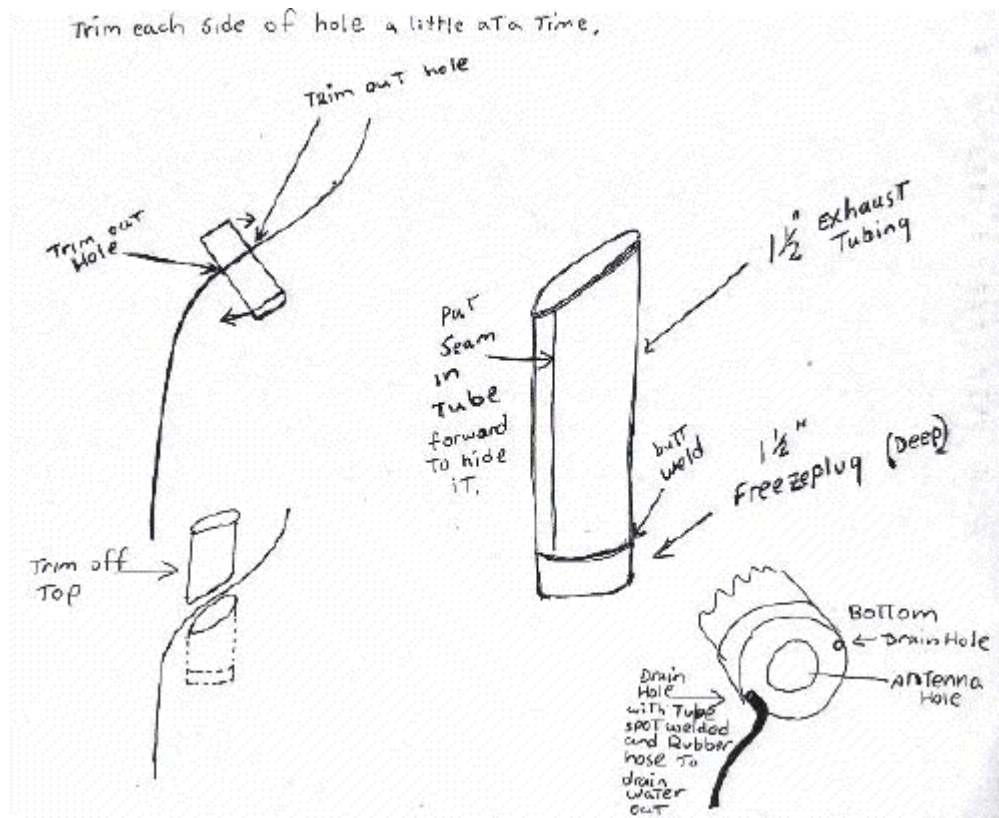 Trim each side of hole a little at a Time.
Trim out hole
Trim out
Hole
1 1/2" Exhaust
Tubing
Put
Seam
in
Tube
forward
To hide
iT.
butt
weld
1 1/2"
Freezeplug (Deep)
Trim off
Top
Bottom
Drain Hole
Antenna
Hole
Drain
Hole
with Tube
spot welded
and Rubber
hose To
drain
water
out